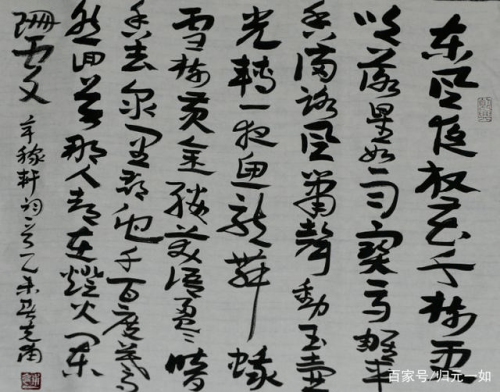 东风夜放花千树更
吹落星如雨宝马雕车
香满路凤箫聲動玉壶
光轉一夜鱼龙舞蛾
雪柳黄金缕笑语盈盈暗
香去众里寻他千百度蓦
然回首那人却在燈火阑
珊处
辛稼轩词首乙未
百家号/归元一如